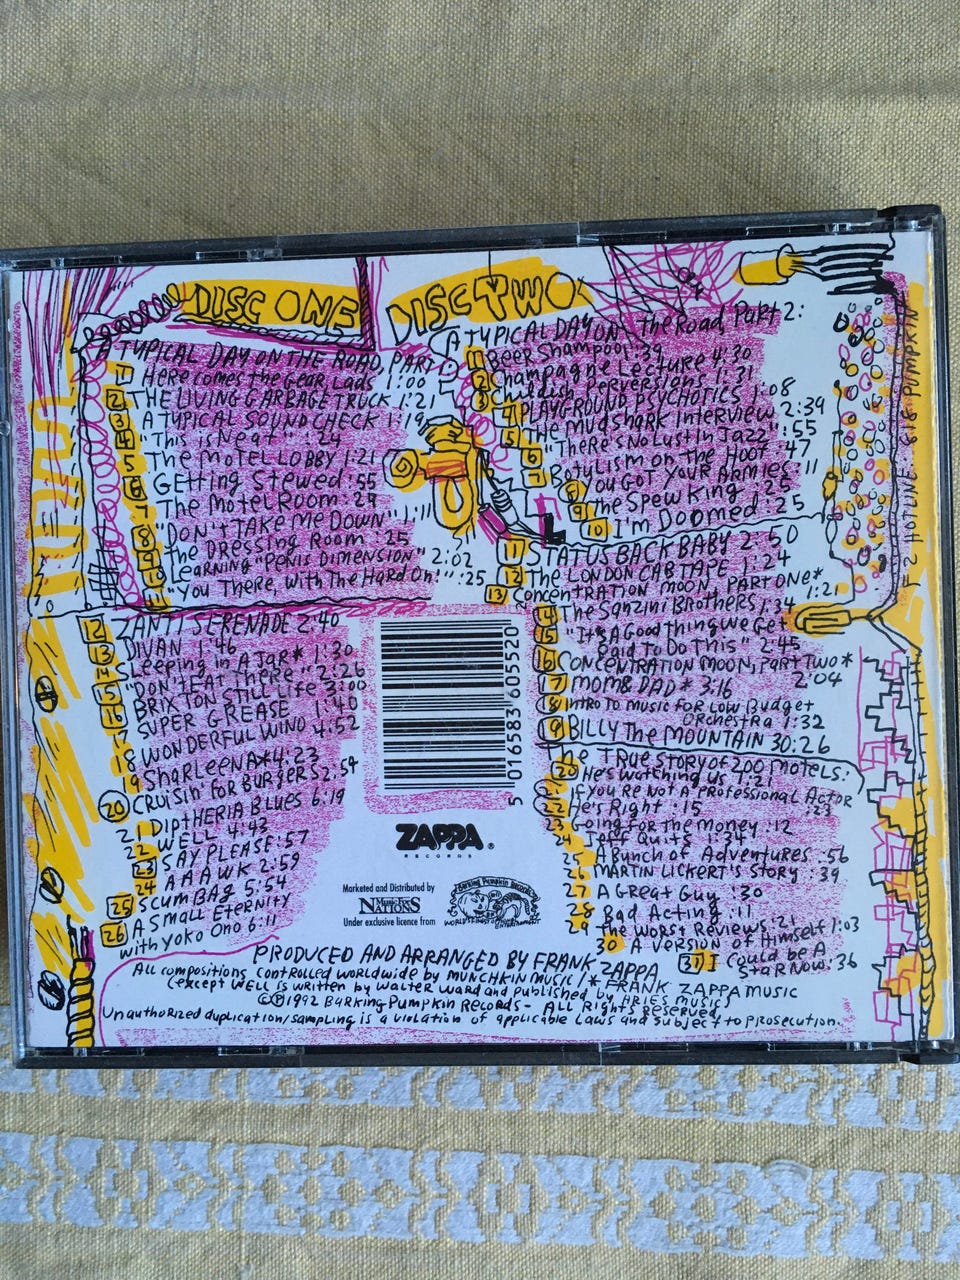 DISC ONE
A TYPICAL DAY ON THE ROAD, PART 1:
1 Here comes the Gear, Lads 1:00
2 THE LIVING GARBAGE TRUCK 1:21
3 A TYPICAL SOUND CHECK 1:19
4 "This is Neat" :24
5 The MOTEL LOBBY 1:21
6 GETTING Stewed :55
7 The Motel Room :29
8 "DON'T TAKE ME DOWN" 1:11
9 The Dressing Room :25
10 Learning "PENIS DIMENSION" 2:02
11 "You There, with The Hard On!" :25
12 ZANTI SERENADE 2:40
13 DIVAN 1:46
14 Sleeping in A Jar* 1:30
15 "DON'T EAT There" 2:26
16 BRIXTON STILL LIFE 3:00
17 SUPER GREASE 1:40
18 WONDERFUL WINO 4:52
19 SHARLEENA* 4:23
20 CRUISIN' FOR BURGERS 2:54
21 DIPTHERIA BLUES 6:19
22 WELL 4:43
23 SAY PLEASE :57
24 AAAWK 2:59
25 SCUM BAG 5:54
26 A SMALL ETERNITY
with YOKO ONO 6:11
DISC TWO
A TYPICAL DAY ON The Road, Part 2:
1 Beer Shampoo 1:39
2 Champagne Lecture 4:30
3 Childish Perversions 1:31
4 PLAYGROUND PSYCHOTICS 1:08
5 The Mudshark Interview 2:39
6 "There's No Lust In Jazz" :55
7 Botulism on the Hoof :47
8 YOU GOT YOUR ARMIES :11
9 The Spew King :25
10 I'm Doomed :25
11 STATUS BACK BABY 2:50
12 The LONDON CAB TAPE 1:24
13 Concentration MOON, PART ONE* 1:21
14 The Sanzini Brothers 1:34
15 "It's A Good Thing We Get
Paid to Do This" 2:45
16 CONCENTRATION MOON, PART TWO*
2:04
17 MOM & DAD* 3:16
18 INTRO TO MUSIC FOR LOW Budget
Orchestra 1:32
19 BILLY The MOUNTAIN 30:26
The TRUE STORY OF 200 MOTELS:
20 He's Watching Us 1:21
21 If You're Not A Professional Actor :23
22 He's Right :15
23 Going For The Money :12
24 Jeff Quits 1:34
25 A Bunch of Adventures :56
26 MARTIN LICKERT'S STORY :39
27 A Great Guy :30
28 Bad Acting :11
29 The Worst Reviews :21
30 A Version of Himself 1:03
31 I Could be A
Star Now :36
F2 HOTLINE 818 PUMPKIN
5 016583 605520
ZAPPA
RECORDS
Marketed and Distributed by
Music For
NATIONS
Under exclusive licence from
Barking Pumpkin Records
PRODUCED AND ARRANGED BY FRANK ZAPPA
All compositions controlled worldwide by MUNCHKIN MUSIC / * FRANK ZAPPA MUSIC
(except WELL is written by Walter Ward and published by ARIES MUSIC)
©℗ 1992 Barking Pumpkin Records - All Rights Reserved
Unauthorized duplication/sampling is a violation of applicable Laws and subject to prosecution.